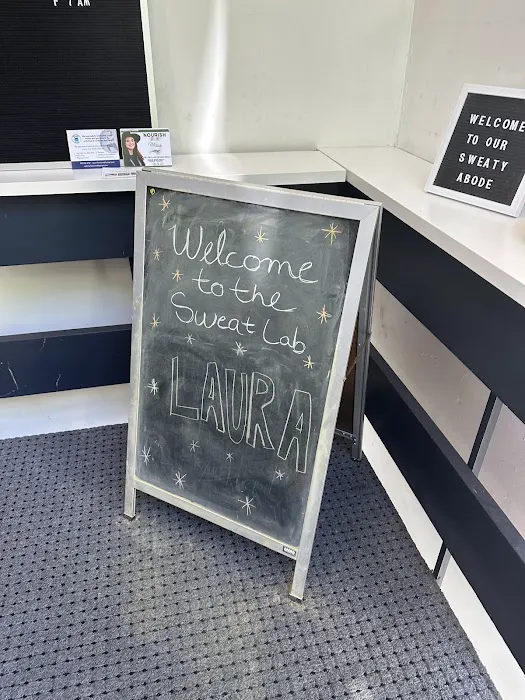 7 AM
NOURISH
WELCOME
TO OUR
SWEATY
ABODE
Welcome
to the
Sweat Lab
LAURA